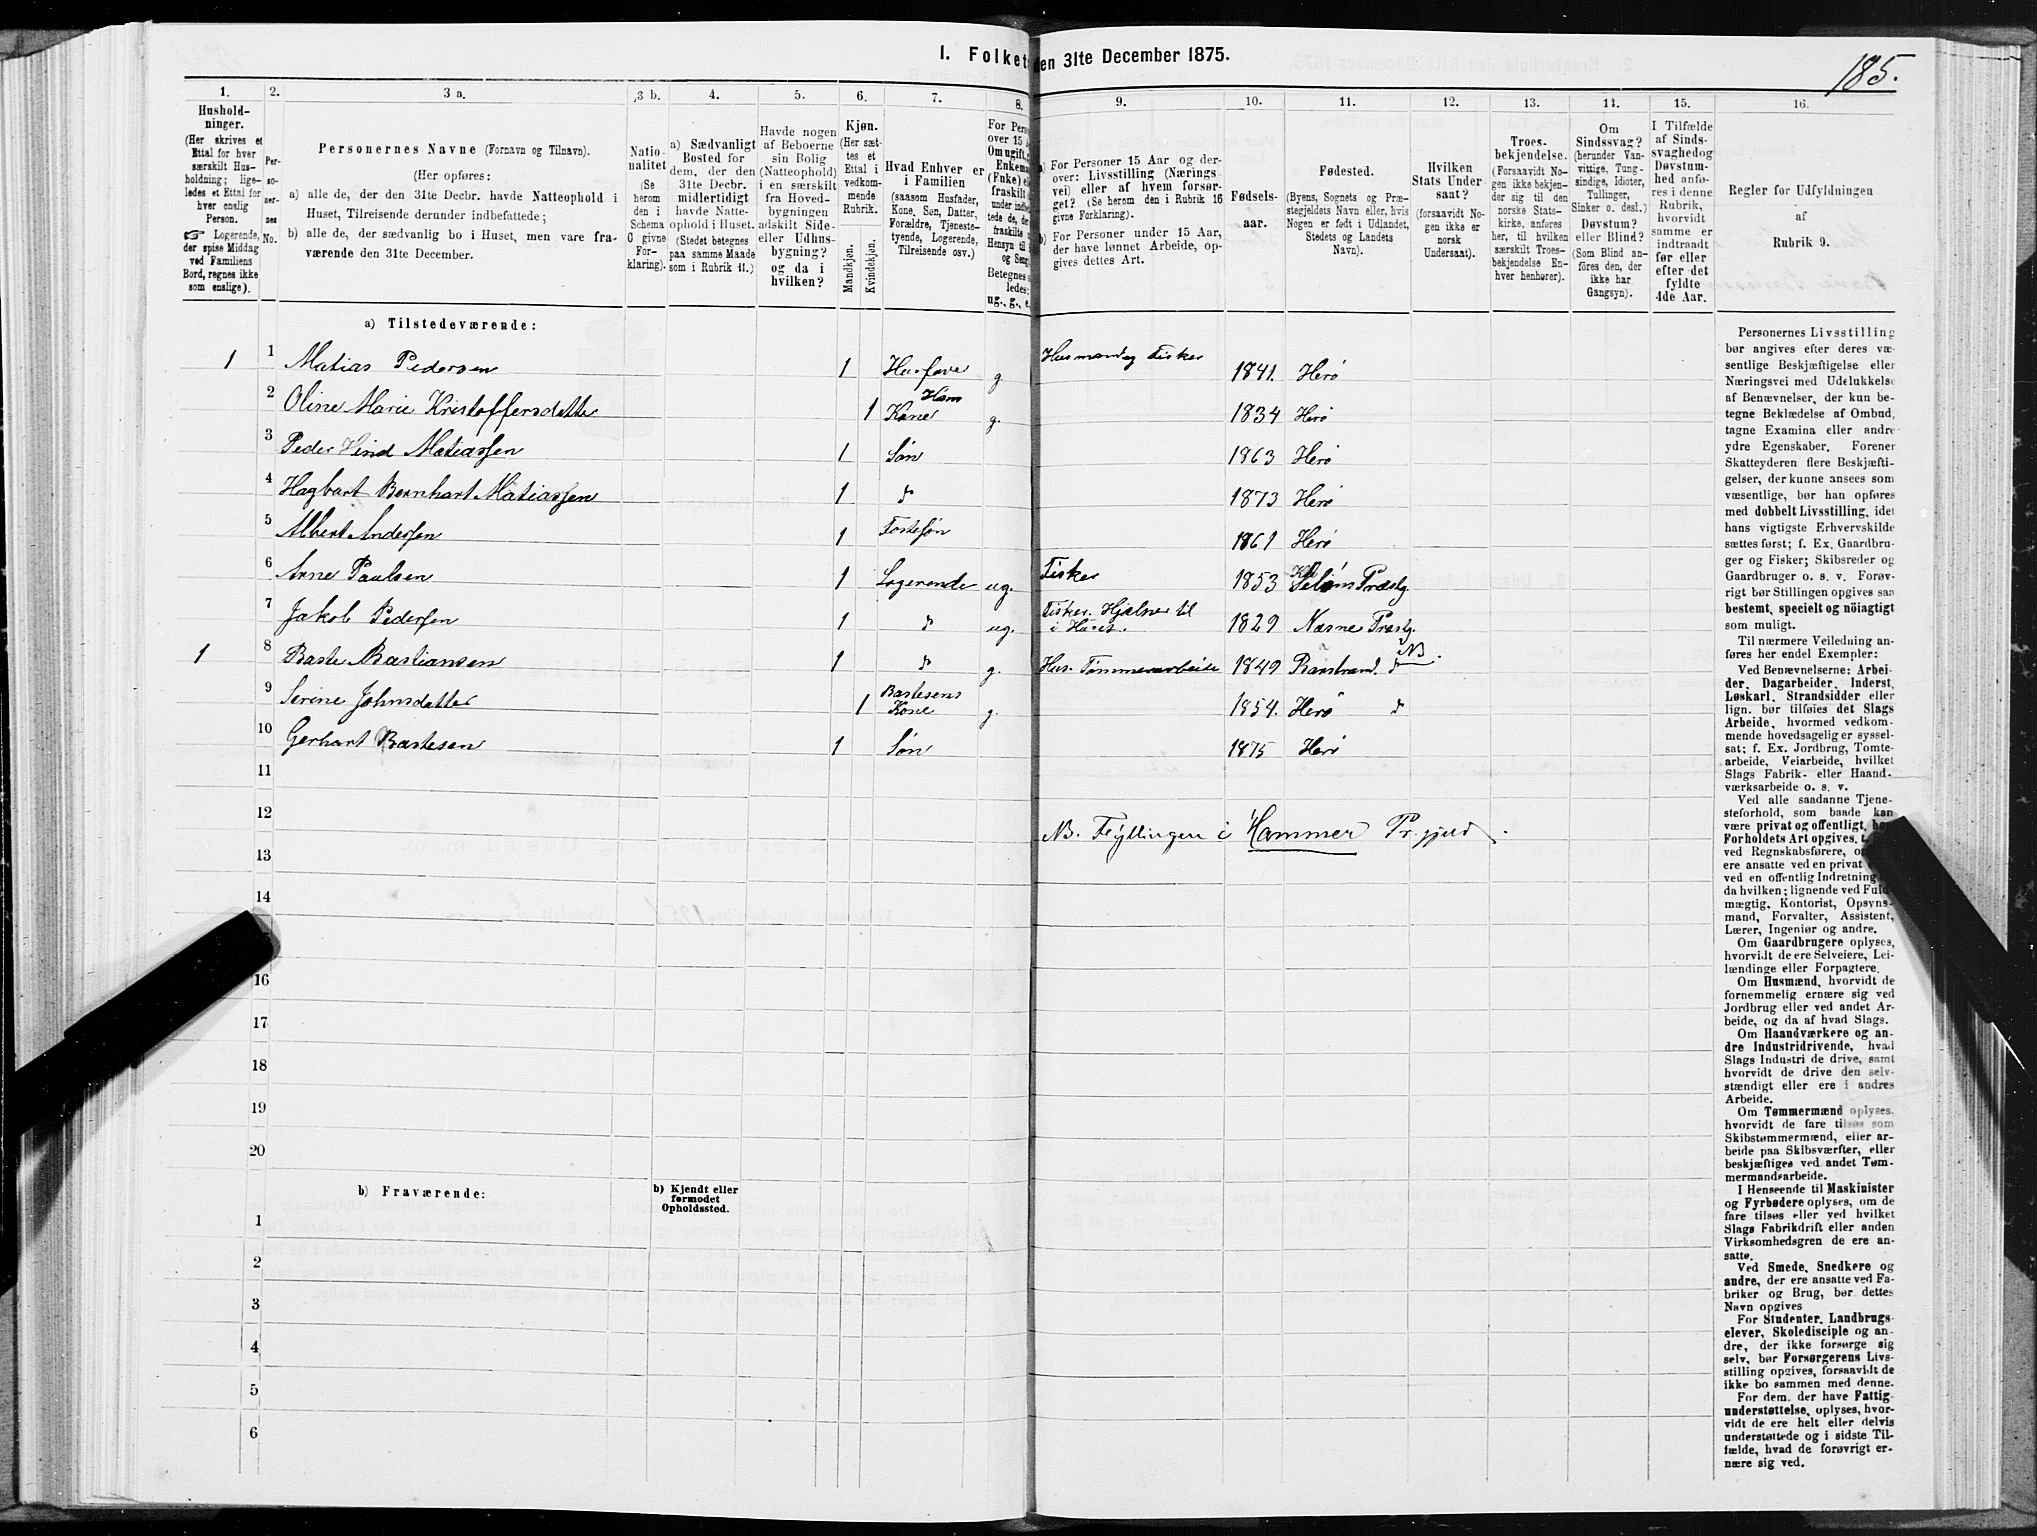 I. Folket
den 31te December 1875.
185.
1.
2.
3 a.
3 b.
4.
5.
6.
7.
8.
9.
10.
11.
12.
13.
14.
15.
16.
Hushold-
ninger.
(Her skrives et
Ettal for hver
særskilt Hus-
holdning; lige-
ledes et Ettal for
hver enslig
Person.
☞ Logerende,
der spise Middag
ved Familiens
Bord, regnes ikke
som enslige).
Per-
so-
ner-
nes
No.
Personernes Navne (Fornavn og Tilnavn).
(Her opføres:
a) alle de, der den 31te Decbr. havde Natteophold i
Huset, Tilreisende derunder indbefattede;
b) alle de, der sædvanlig bo i Huset, men vare fra-
værende den 31te December.
Natio-
nalitet
(Se
herom
den i
Schema
C givne
For-
klaring).
a) Sædvanligt
Bosted for
dem, der den
31te Decbr.
midlertidigt
havde Natte-
ophold i Huset.
(Stedet betegnes
paa samme Maade
som i Rubrik 11.)
Havde nogen
af Beboerne
sin Bolig
(Natteophold)
i en særskilt
fra Hoved-
bygningen
adskilt Side-
eller Udhus-
bygning?
og da i
hvilken?
Kjøn.
(Her sæt-
tes et
Ettal i
vedkom-
mende
Rubrik.
Mandkjøn.
Kvindekjøn.
Hvad Enhver er
i Familien
(saasom Husfader,
Kone, Søn, Datter,
Forældre, Tjeneste-
tyende, Logerende,
Tilreisende osv.)
For Pers
over 15
Om ugift,
Enkem
(Fuke)
fraskilt
under indbe
tede de,
fraskilte
Hensyn til
og Seng.
Betegnes
ledes:
ug., g., e.
a) For Personer 15 Aar og der-
over: Livsstilling (Nærings-
vei) eller af hvem forsør-
get? (Se herom den i Rubrik 16
givne Forklaring).
b) For Personer under 15 Aar,
der have lønnet Arbeide, op-
gives dettes Art.
Fødsels-
aar.
Fødested.
(Byens, Sognets og Præ-
stegjeldets Navn eller, hvis
Nogen er født i Udlandet,
Stedets og Landets
Navn).
Hvilken
Stats Under
saat?
(forsaavidt No-
gen ikke er
norsk
Undersaat).
Troes-
bekjendelse.
(Forsaavidt No-
gen ikke bekjen-
der sig til den
norske Stats-
kirke, anføres
her, til hvilken
særskilt Troes-
bekjendelse En-
hver henhører).
Om
Sindssvag?
(herunder Van-
vittige, Tung-
sindige, Idioter,
Tullinger,
Sinker o. desl.)
Døvstum?
eller Blind?
(Som Blind an-
føres den, der
ikke har
Gangsyn).
I Tilfælde
af Sinds-
svaghed og
Døvstum-
hed anfø-
res i denne
Rubrik,
hvorvidt
samme er
indtraadt
før eller
efter det
fyldte
4de Aar.
Regler for Udfyldningen
af
Rubrik 9.
a) Tilstedeværende:
1 1 Matias Pedersen 1 Husfaer g. Husmand og Fisker 1841. Herø
2 Oline Marie Kristoffersdatter 1 Hans Kone g. 1834 Herø
3 Peder Hind Matiassen 1 Søn 1863 Herø
4 Hagbart Bernhart Matiassen 1 d 1873 Herø
5 Albert Andersen 1 Fostesøn 1861 Herø
6 Arne Paulsen 1 Logerende ug. Fisker 1853 Præstg.
7 Jakob Pedersen 1 d ug. Fisker. Hjælper til i Huset. 1829 Næsne Præstg.
1 8 Baste Bastiansen 1 d g. Hus. Tømmerarbeide 1849 d NB.
9 Serine Johnsdatter 1 Bastesens Kone g. 1854. Herø d
10 Gerhart Bastesen 1 Søn 1875 Herø
11
12
NB. i Hammer Pr.gjeld.
13
14
16
17
18
19
20
b) Fraværende:
b) Kjendt eller
formodet
Opholdssted.
1
2
3
4
5
6
Personernes Livsstilling
bør angives efter deres væ-
sentlige Beskjæftigelse eller
Næringsvei med Udelukkelse
af Benævnelser, der kun be-
tegne Beklædelse af Ombud,
tagne Examina eller andre
ydre Egenskaber. Forener
Skatteyderen flere Beskjæfti-
gelser, der kunne ansees som
væsentlige, bør han opføres
med dobbelt Livsstilling, idet
hans vigtigste Erhvervskilde
sættes først; f. Ex. Gaardbru-
ger og Fisker; Skibsreder og
Gaardbruger o. s. v. Forøv-
rigt bør Stillingen opgives saa
bestemt, specielt og nöiagtigt
som muligt.
Til nærmere Veiledning an-
føres her endel Exempler:
Ved Benævnelserne: Arbei-
der, Dagarbeider, Inderst,
Løskarl, Strandsidder eller
lign. bør tilføies det Slags
Arbeide, hvormed vedkom-
mende hovedsagelig er syssel-
sat; f. Ex. Jordbrug, Tomte-
arbeide, Veiarbeide, hvilket
Slags Fabrik- eller Haand-
værksarbeide o. s. v.
Ved alle saadanne Tjene-
steforhold, som baade kan
være privat og offentligt, bør
Forholdets Art opgives,
ved Regnskabsførere, om
ere ansatte ved en privat
ved en offentlig Indretning
da hvilken; lignende ved Fuld-
mægtig, Kontorist, Opsyns-
mand, Forvalter, Assistent,
Lærer, Ingeniør og andre.
Om Gaardbrugere oplyses,
hvorvidt de ere Selveiere, Lei-
lændinge eller Forpagtere.
Om Husmænd, hvorvidt de
fornemmelig ernære sig ved
Jordbrug eller ved andet Ar-
beide, og da af hvad Slags.
Om Haandværkere og an-
dre Industridrivende, hvad
Slags Industri de drive, samt
hvorvidt de drive den selv-
stændigt eller ere i andres
Arbeide.
Om Tømmermænd oplyses,
hvorvidt de fare tilsøs som
Skibstømmermænd, eller ar-
beide paa Skibsværfter, eller
beskjæftiges ved andet Tøm-
mermandsarbeide.
I Henseende til Maskinister
og Fyrbødere oplyses, om de
fare tilsøs eller ved hvilket
Slags Fabrikdrift eller anden
Virksomhedsgren de ere an-
satte.
Ved Smede, Snedkere og
andre, der ere ansatte ved Fa-
briker og Brug, bør dettes
Navn opgives
For Studenter, Landbrugs-
elever, Skoledisciple og an-
dre, der ikke forsørge sig
selv, bør Forsørgerens Livs-
stilling opgives, forsaavidt de
ikke bo sammen med denne.
For dem, der have Fattig-
understøttelse, oplyses, hvor-
vidt de ere helt eller delvis
understøttede og i sidste Til-
fælde, hvad de forøvrigt er-
nære sig ved.